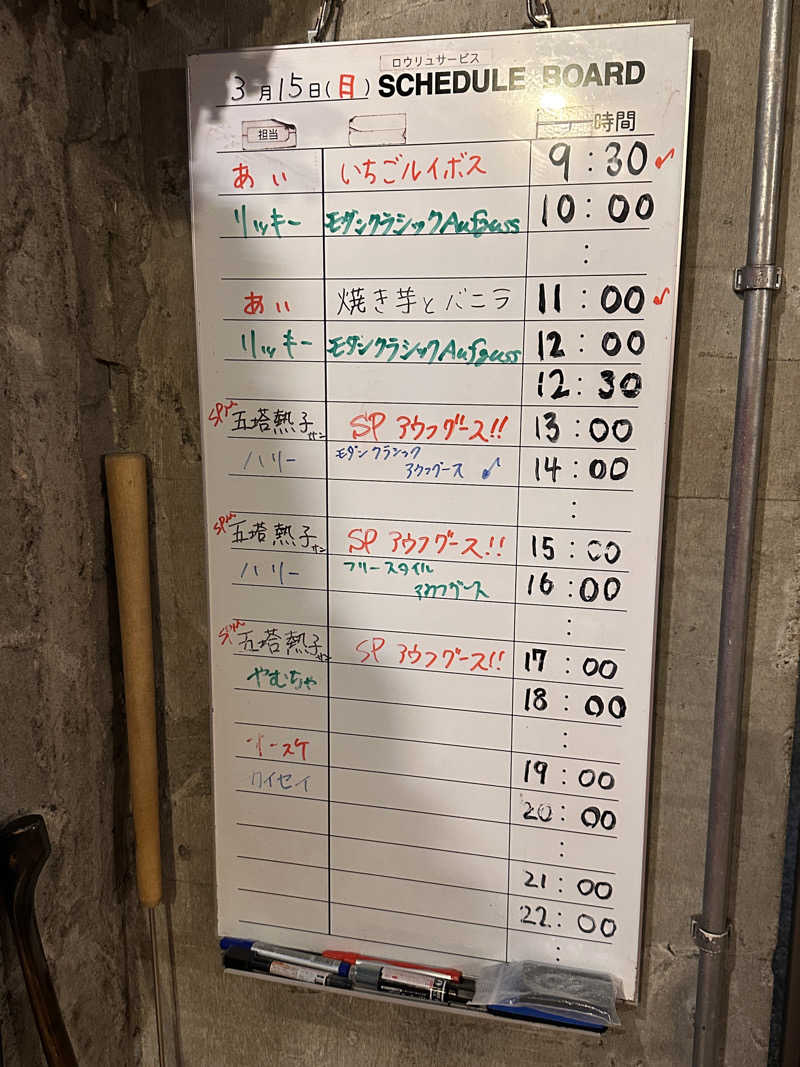 ロウリュサービス
3月15日(日) SCHEDULE BOARD
担当 時間
あい いちごルイボス 9:30
リッキー モダンクラシックAufguss 10:00
:
あい 焼き芋とバニラ 11:00
リッキー モダンクラシックAufguss 12:00
12:30
五塔熱子サン SP アウフグース!! 13:00
ハリー モダンクラシック 14:00
アウフグース
:
五塔熱子サン SP アウフグース!! 15:00
ハリー フリースタイル 16:00
アウフグース
:
五塔熱子サン SP アウフグース!! 17:00
やむちゃ 18:00
:
オースケ 19:00
カイセイ 20:00
:
21:00
22:00
: